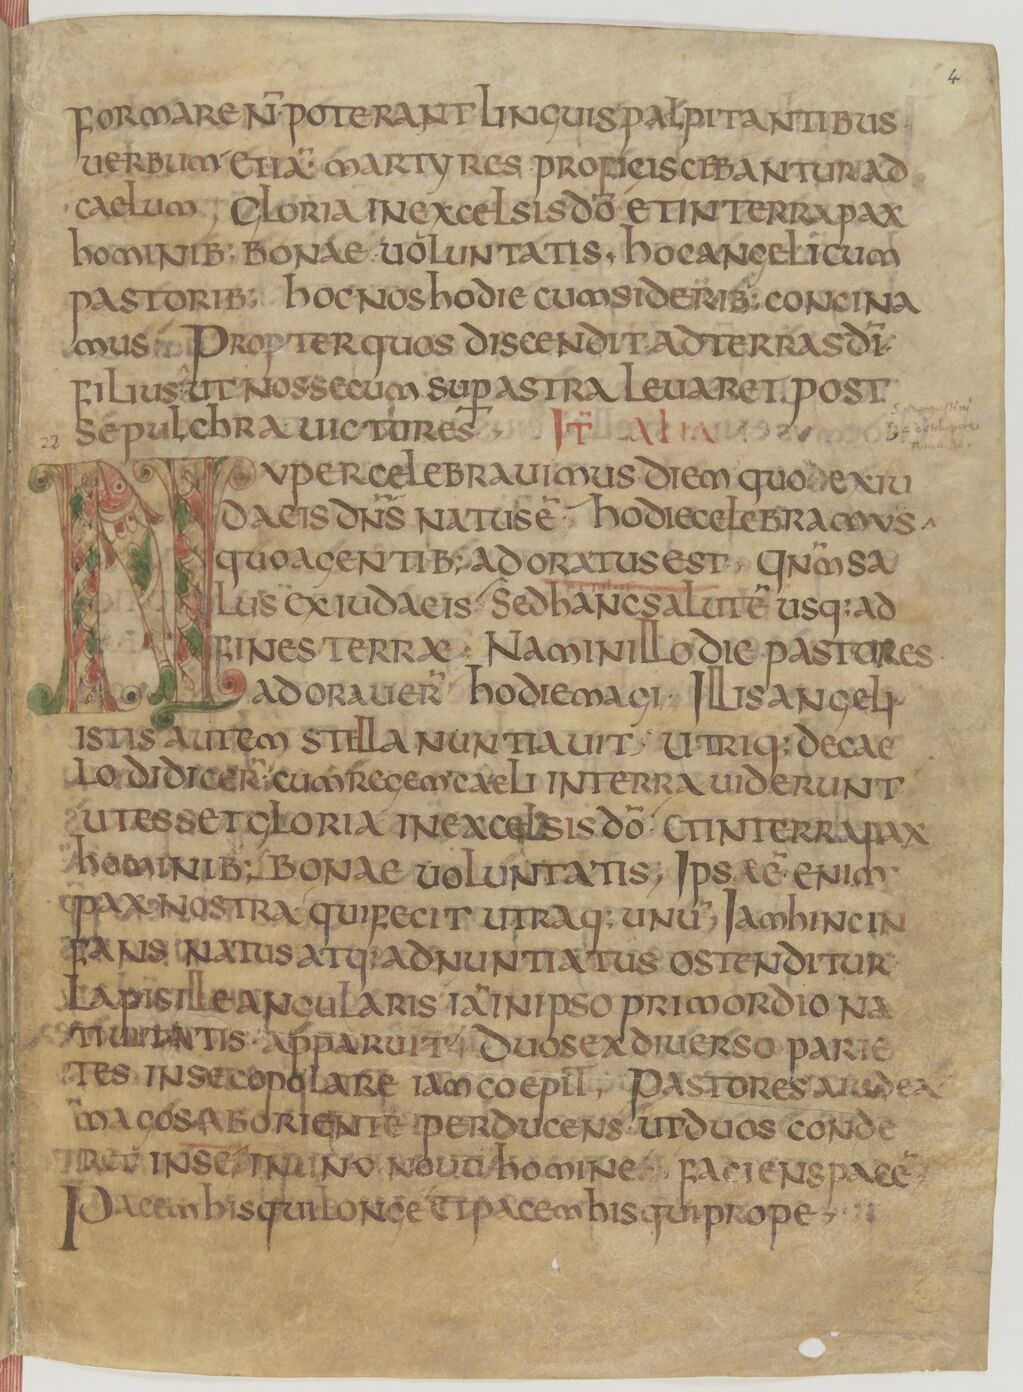 4
formare n̄ poterant linguis palpitantibus
uerbum· etiā martyres proficiscebantur ad
caelum, Gloria in excelsis dō et in terra pax
hominib; bonae uoluntatis, hoc angelicum
pastorib; hoc nos hodie cum siderib; concina
mus Propter quos discendit ad terras dī
filius ut nos secum sup astra leuaret post
sepulchra uictores Iī alia
22
Nuper celebrauimus diem quo ex iu
daeis dn̄s natus ē hodie celebramus
quo a gentib; adoratus est, Qn̄m sa
lus ex iudaeis Sed hanc salutē usq; ad
fines terrae Nam in illo die pastores
adorauer̄ hodie magi Illis angeli
istis autem stella nuntiauit Utriq; de cae
lo didicer̄ cum regem caeli in terra uiderunt
ut esset gloria in excelsis dō et in terra pax
hominib; bonae uoluntatis, Ipsae enim
pax nostra qui fecit utraq; unū, Iam hinc in
fans natus atq; adnuntiatus ostenditur
Lapis ille angularis iā in ipso primordio na
tiuitatis apparuit Duos ex diuerso parie
tes in se copolare iam coepit, Pastores a iudea
magos ab oriente perducens ut duos conde
ret in se in uno nouo homine faciens pacē
Pacem his qui longe et pacem his qui prope